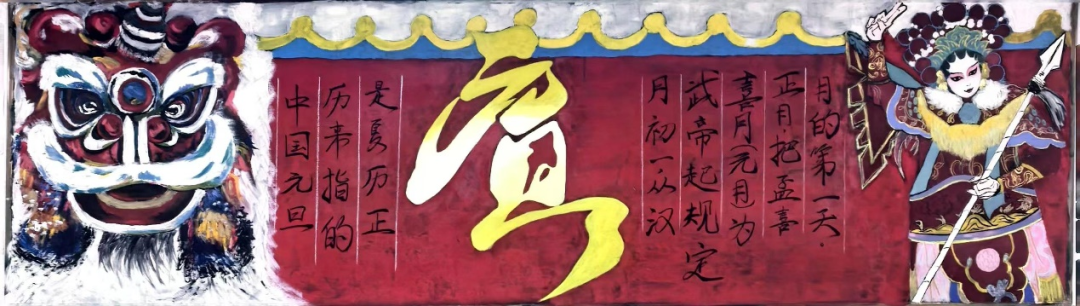 中国元旦
历来指的
是夏历正
月初一从汉
武帝起规定
喜月(元月为
正月把孟喜
月的第一天.